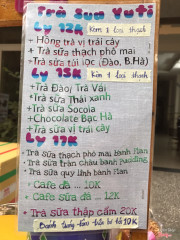 Trà Sữa Yuti
Ly 12K Kèm 1 loại thạch
+ Hồng trà vị trái cây
+ Trà sữa thạch phô mai
+ Trà sữa túi lọc (Đào, B.Hà)
Ly 15K Kèm 1 loại thạch
+ Trà Đào/ Trà Vải
+ Trà sữa Thái xanh
+ Trà sữa Socola
+ Chocolate Bạc Hà
+ Trà sữa vị trái cây
Ly 17K
+ Trà sữa thạch phô mai bánh flan
+ Trà sữa trân châu bánh pudding
+ Trà sữa quy linh bánh flan
- Cafe đá ... 10K
- Cafe sữa đá ... 12K
+ Trà sữa thập cẩm 20K
Bánh tráng 10K